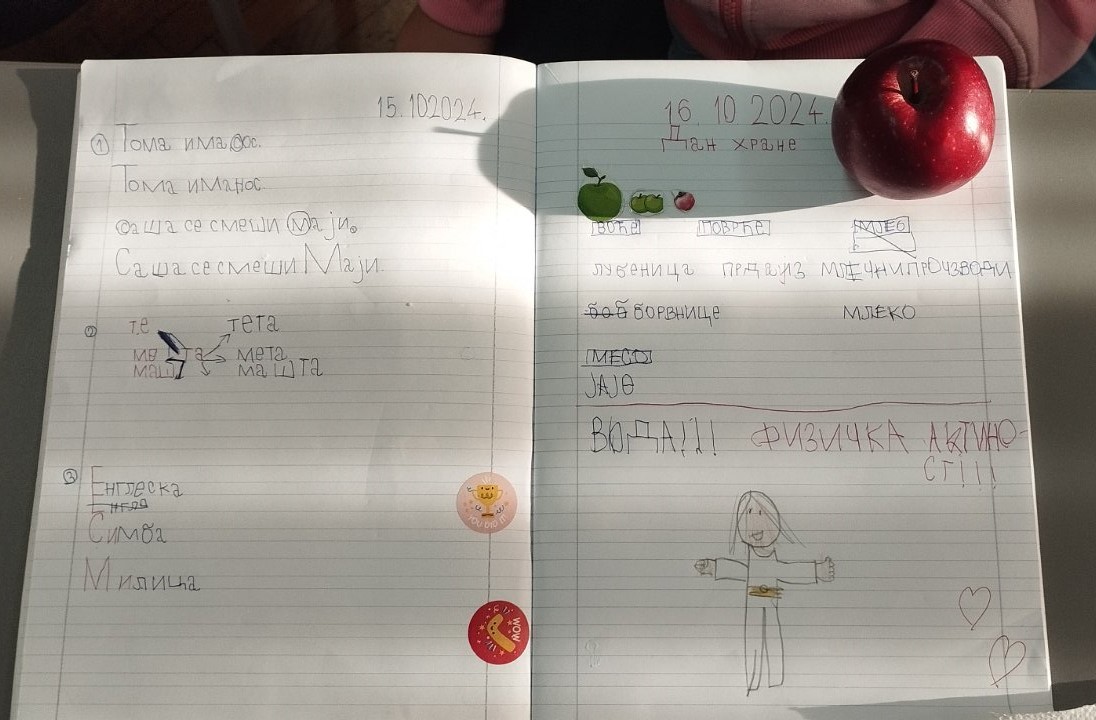 15.102024.
① Тома има ос.
Тома иманос.
саша се смеши Мају.
Саша се смеши Маји.
② те тета
ме та мета
маш машта
③ Енглеска
Енгле
Симба
Милица
YOU DID IT!
WOW
16. 10 2024.
Дан хране
ВОЋЕ ПОВРЋЕ МЈЕО
лубеница прдауз МЛЕЧНИ ПРОИЗВОДИ
боб БОРВНИЦЕ МЛЕКО
МЕСО
ЈАЈЕ
ВОДА!!! ФИЗИЧКА АКТИНО-
СТ!!!